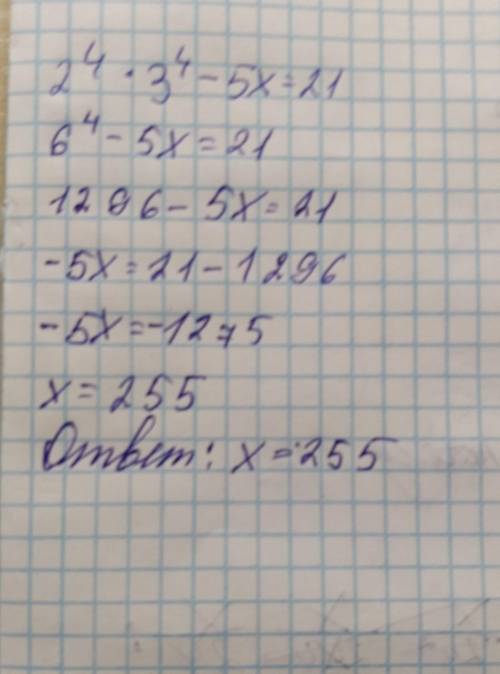 2⁴ · 3⁴ - 5x = 21
6⁴ - 5x = 21
1296 - 5x = 21
-5x = 21 - 1296
-5x = -1275
x = 255
Ответ: x = 255